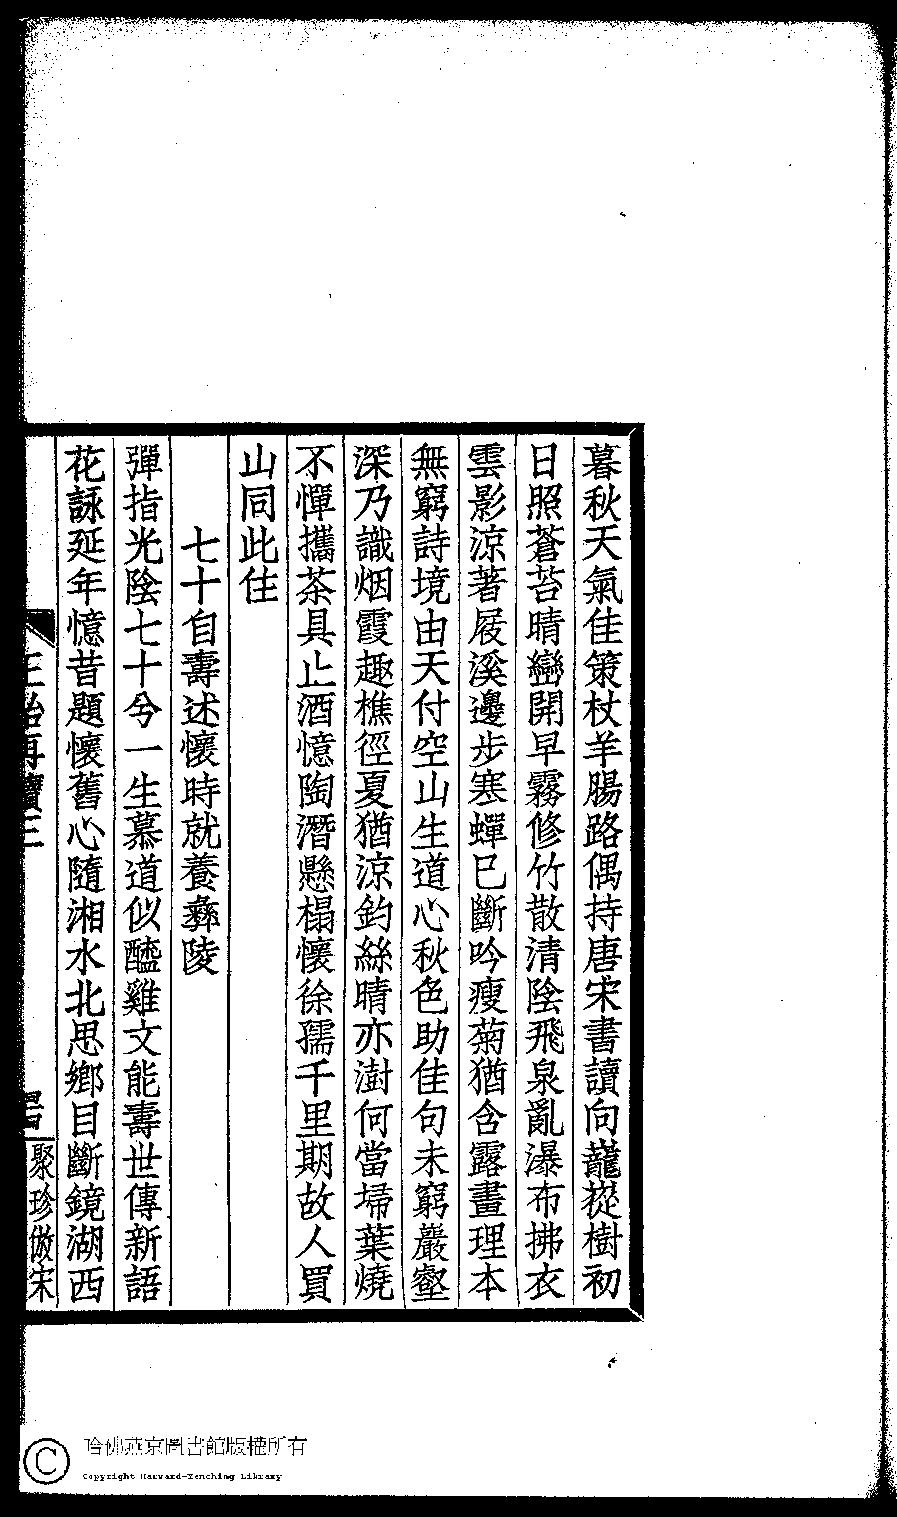 暮秋天氣佳策杖羊腸路偶持唐宋書讀向蘢蓯樹初
日照蒼苔晴巒開早霧修竹散清陰飛泉亂瀑布拂衣
雲影涼著屐溪邊步寒蟬已斷吟瘦菊猶含露畫理本
無窮詩境由天付空山生道心秋色助佳句未窮巖壑
深乃識烟霞趣樵徑夏猶涼釣絲晴亦澍何當埽葉燒
不憚攜茶具止酒憶陶潛懸榻懷徐孺千里期故人買
山同此住
七十自壽述懷時就養彝陵
彈指光陰七十兮一生慕道似醯雞文能壽世傳新語
花詠延年憶昔題懷舊心隨湘水北思鄉目斷鏡湖西
聚珍倣宋
哈佛燕京圖書館版權所有
Copyright Harvard-Yenching Library